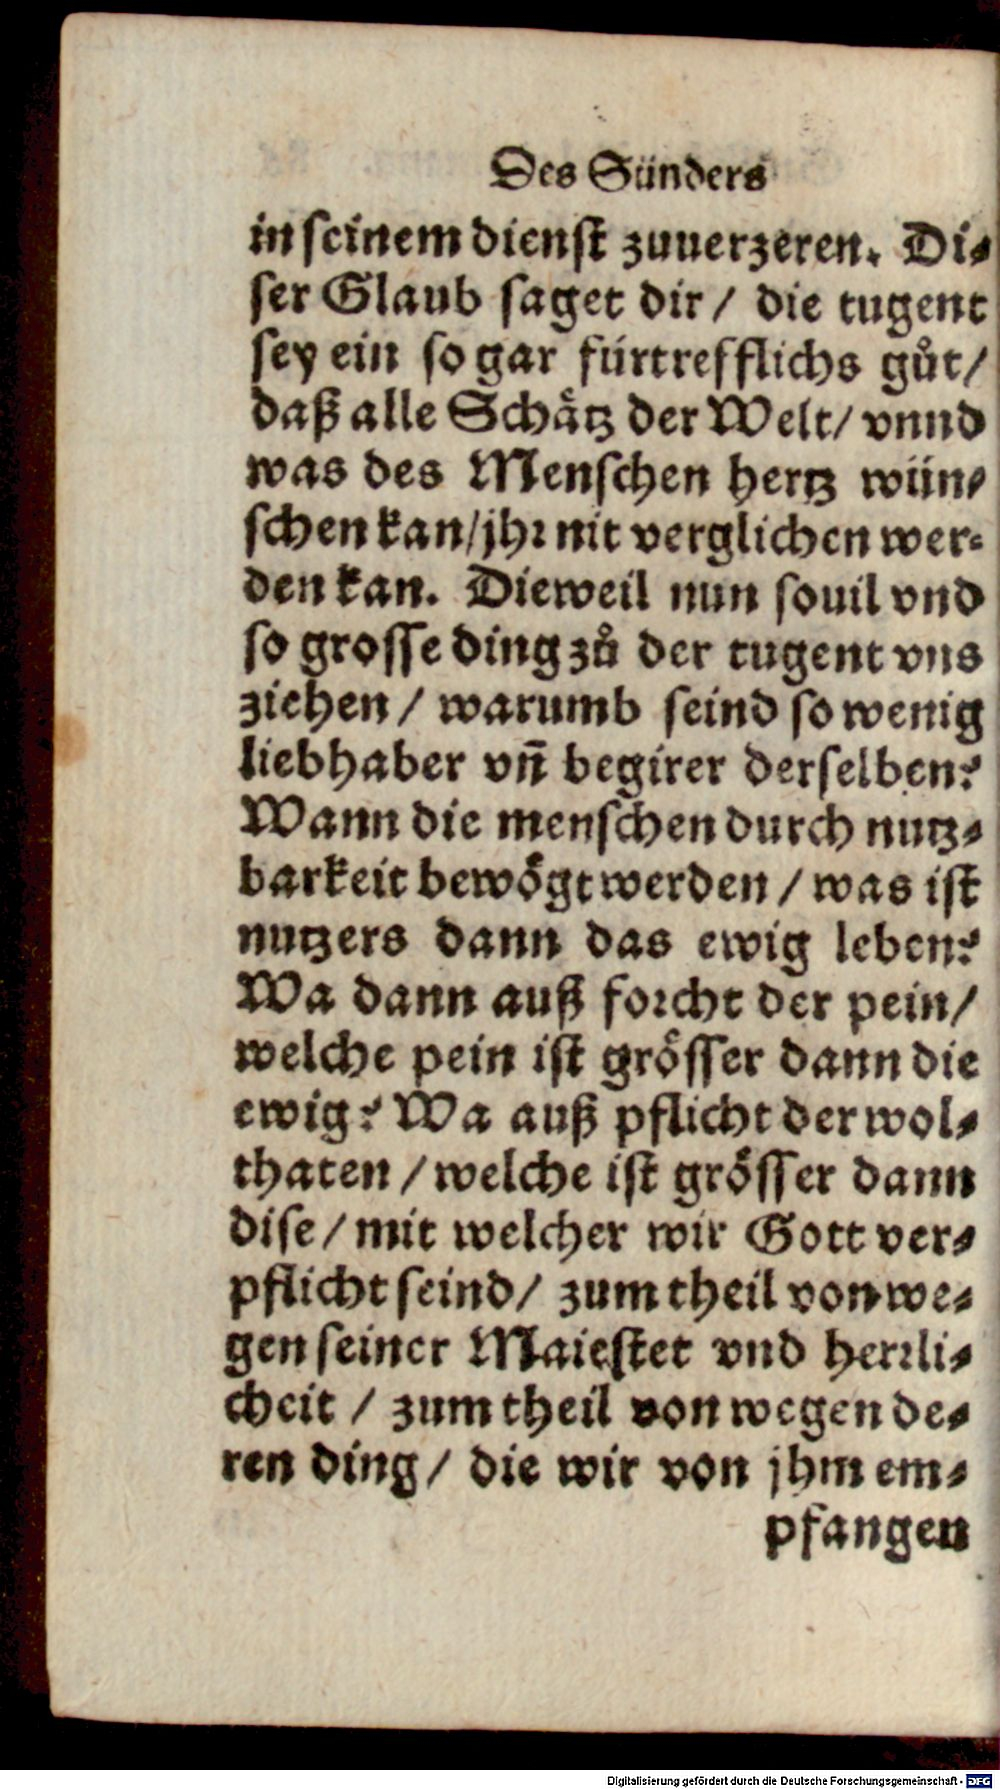 Des Sünders
in seinem dienst zuuerzeren. Di⸗
ser Glaub saget dir / die tugent
sey ein so gar fürtrefflichs gůt/
daß alle Schåtz der Welt/ vnnd
was des Menschen hertz wün⸗
schen kan/jhr nit verglichen wer⸗
den kan. Dieweil nun souil vnd
so grosse ding zů der tugent vns
ziehen / warumb seind so wenig
liebhaber vn̄ begirer derselben?
Wann die menschen durch nutz⸗
barkeit bewögt werden / was ist
nutzers dann das ewig leben?
Wa dann auß forcht der pein/
welche pein ist grösser dann die
ewig? Wa auß pflicht der wol⸗
thaten / welche ist grösser dann
dise / mit welcher wir Gott ver⸗
pflicht seind/ zum theil von we⸗
gen seiner Maiestet vnd herrli⸗
cheit / zum theil von wegen de⸗
ren ding / die wir von jhm em⸗
pfangen
Digitalisierung gefördert durch die Deutsche Forschungsgemeinschaft - DFG